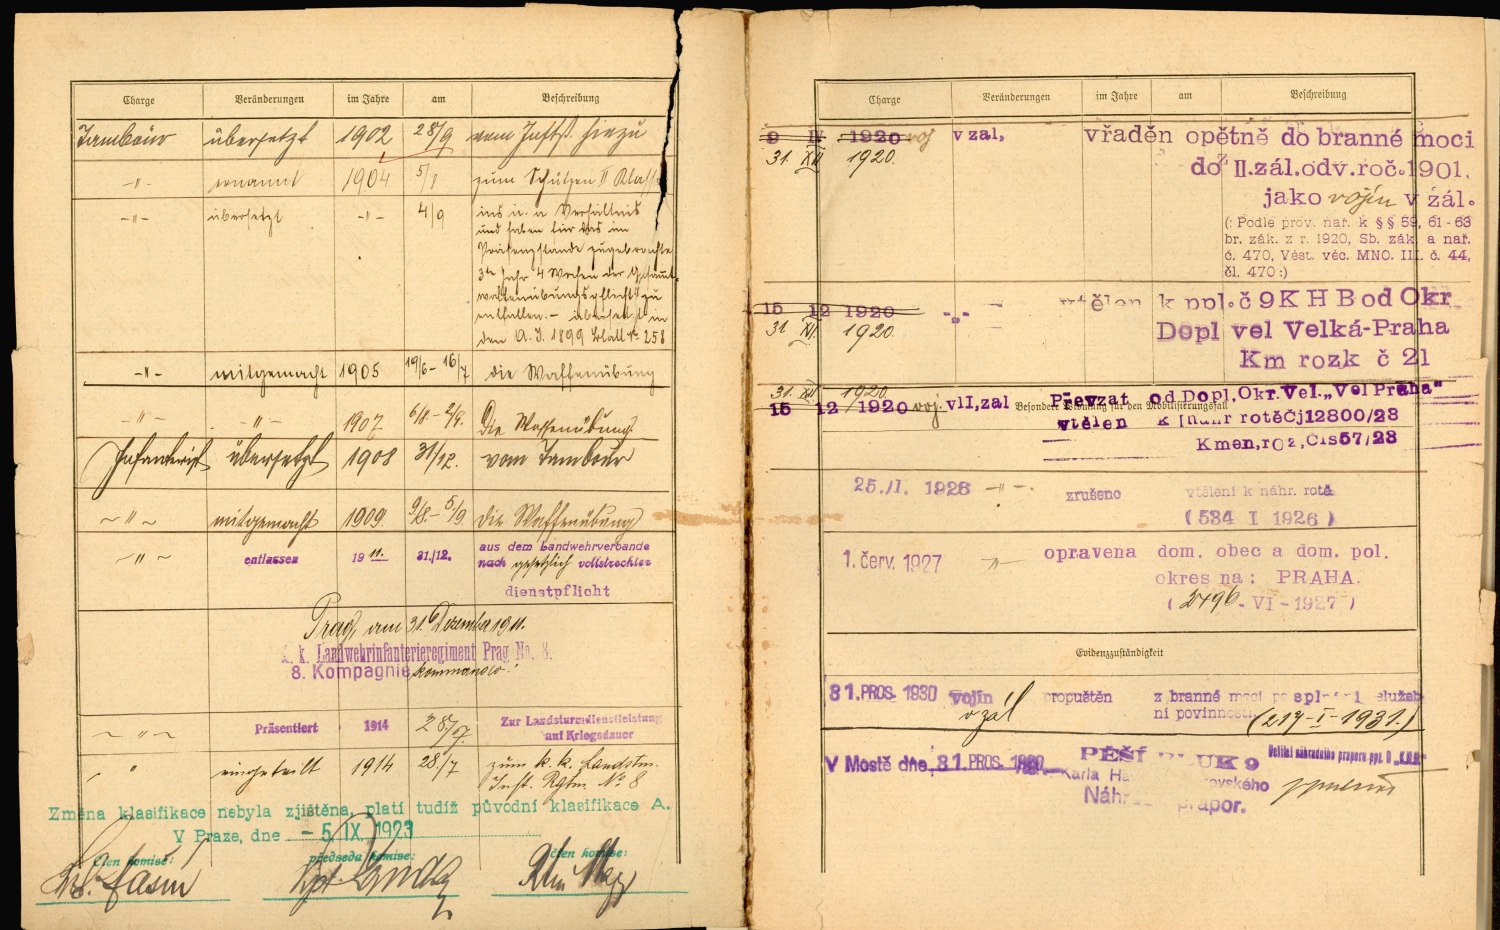 Charge Veränderungen im Jahre am Beschreibung
Tambour übersetzt 1902 28/9 vom Inftst. hiezu
-"- ernannt 1904 5/8 zum Schützen II Klasse
-"- übersetzt -"- 4/9 ins n. a Verhältnis
und haben für das im
Präsenzstande zugebrachte
3te Jahr 4 Wochen der Gesammt
waffenübungspflicht zu
entfallen. – übersetzt in
den A. J. 1899 Blatt Nr. 258
-"- mitgemacht 1905 19/6 - 16/7 die Waffenübung
-"- -"- 1907 6/8 - 2/9. Die Waffenübung.
Infanterist übersetzt 1908 31/12. vom Tambour
~"~ mitgemacht 1909 9/8. - 5/9 die Waffenübung
~"~ entlassen 1911. 31./12. aus dem Landwehrverbande
nach gesetzlich vollstreckter
dienstpflicht
Prag, am 31. Dezember 1911.
k. k. Landwehrinfanterieregiment Prag No. 8.
8. Kompagnie kommando!
~"~ Präsentiert 1914 28./7. Zur Landsturmdienstleistung
auf Kriegsdauer
" eingeteilt 1914 28./7 zum k. k. Landstm.
Inft. Rgtm. No 8
Změna klasifikace nebyla zjištěna, platí tudíž původní klasifikace A.
V Praze, dne - 5. IX. 1923
člen komise: předseda komise: člen komise:
Charge Veränderungen im Jahre am Beschreibung
9 IV 1920 voj v zal, vřaděn opětně do branné moci
31. XII 1920. do z II. zál. odv. roč. 1901,
jako vojín v zál.
(: Podle prov. nař. k §§ 59, 61-63
br. zák. z r. 1920, Sb. zák. a nař.
č. 470, Věst. věc. MNO. III. č. 44,
čl. 470:)
15 12 1920 -„- vtělen k ppl. č 9 K H B od Okr
31. XII. 1920. Dopl vel Velká-Praha
Km rozk č 21
31. XII. 1920.
15 12 1920 voj. v II, zal Převzat od Dopl, Okr. Vel. „Vel Praha"
Besondere Widmung für den Mobilisierungsfall
vtělen k náhr rotě Čj 12800/23
Kmen, roz, čís 57/23
25./I. 1926 -"- zrušeno vtělení k náhr. rotě
(534 I 1926)
1. červ. 1927 -"- opravena dom. obec a dom. pol.
okres na: PRAHA.
(2496 - VI - 1927)
Evidenzzuständigkeit
31. PROS. 1930 vojín propuštěn z branné moci po splnění služeb
v zál ní povinnosti (217-I-1931.)
V Mostě dne, 31. PROS. 1930 PĚŠÍ PLUK 9 Velitel náhradního praporu ppl. 9 „K.H.B."
Karla Havlíčka Borovského
Náhradní prapor.